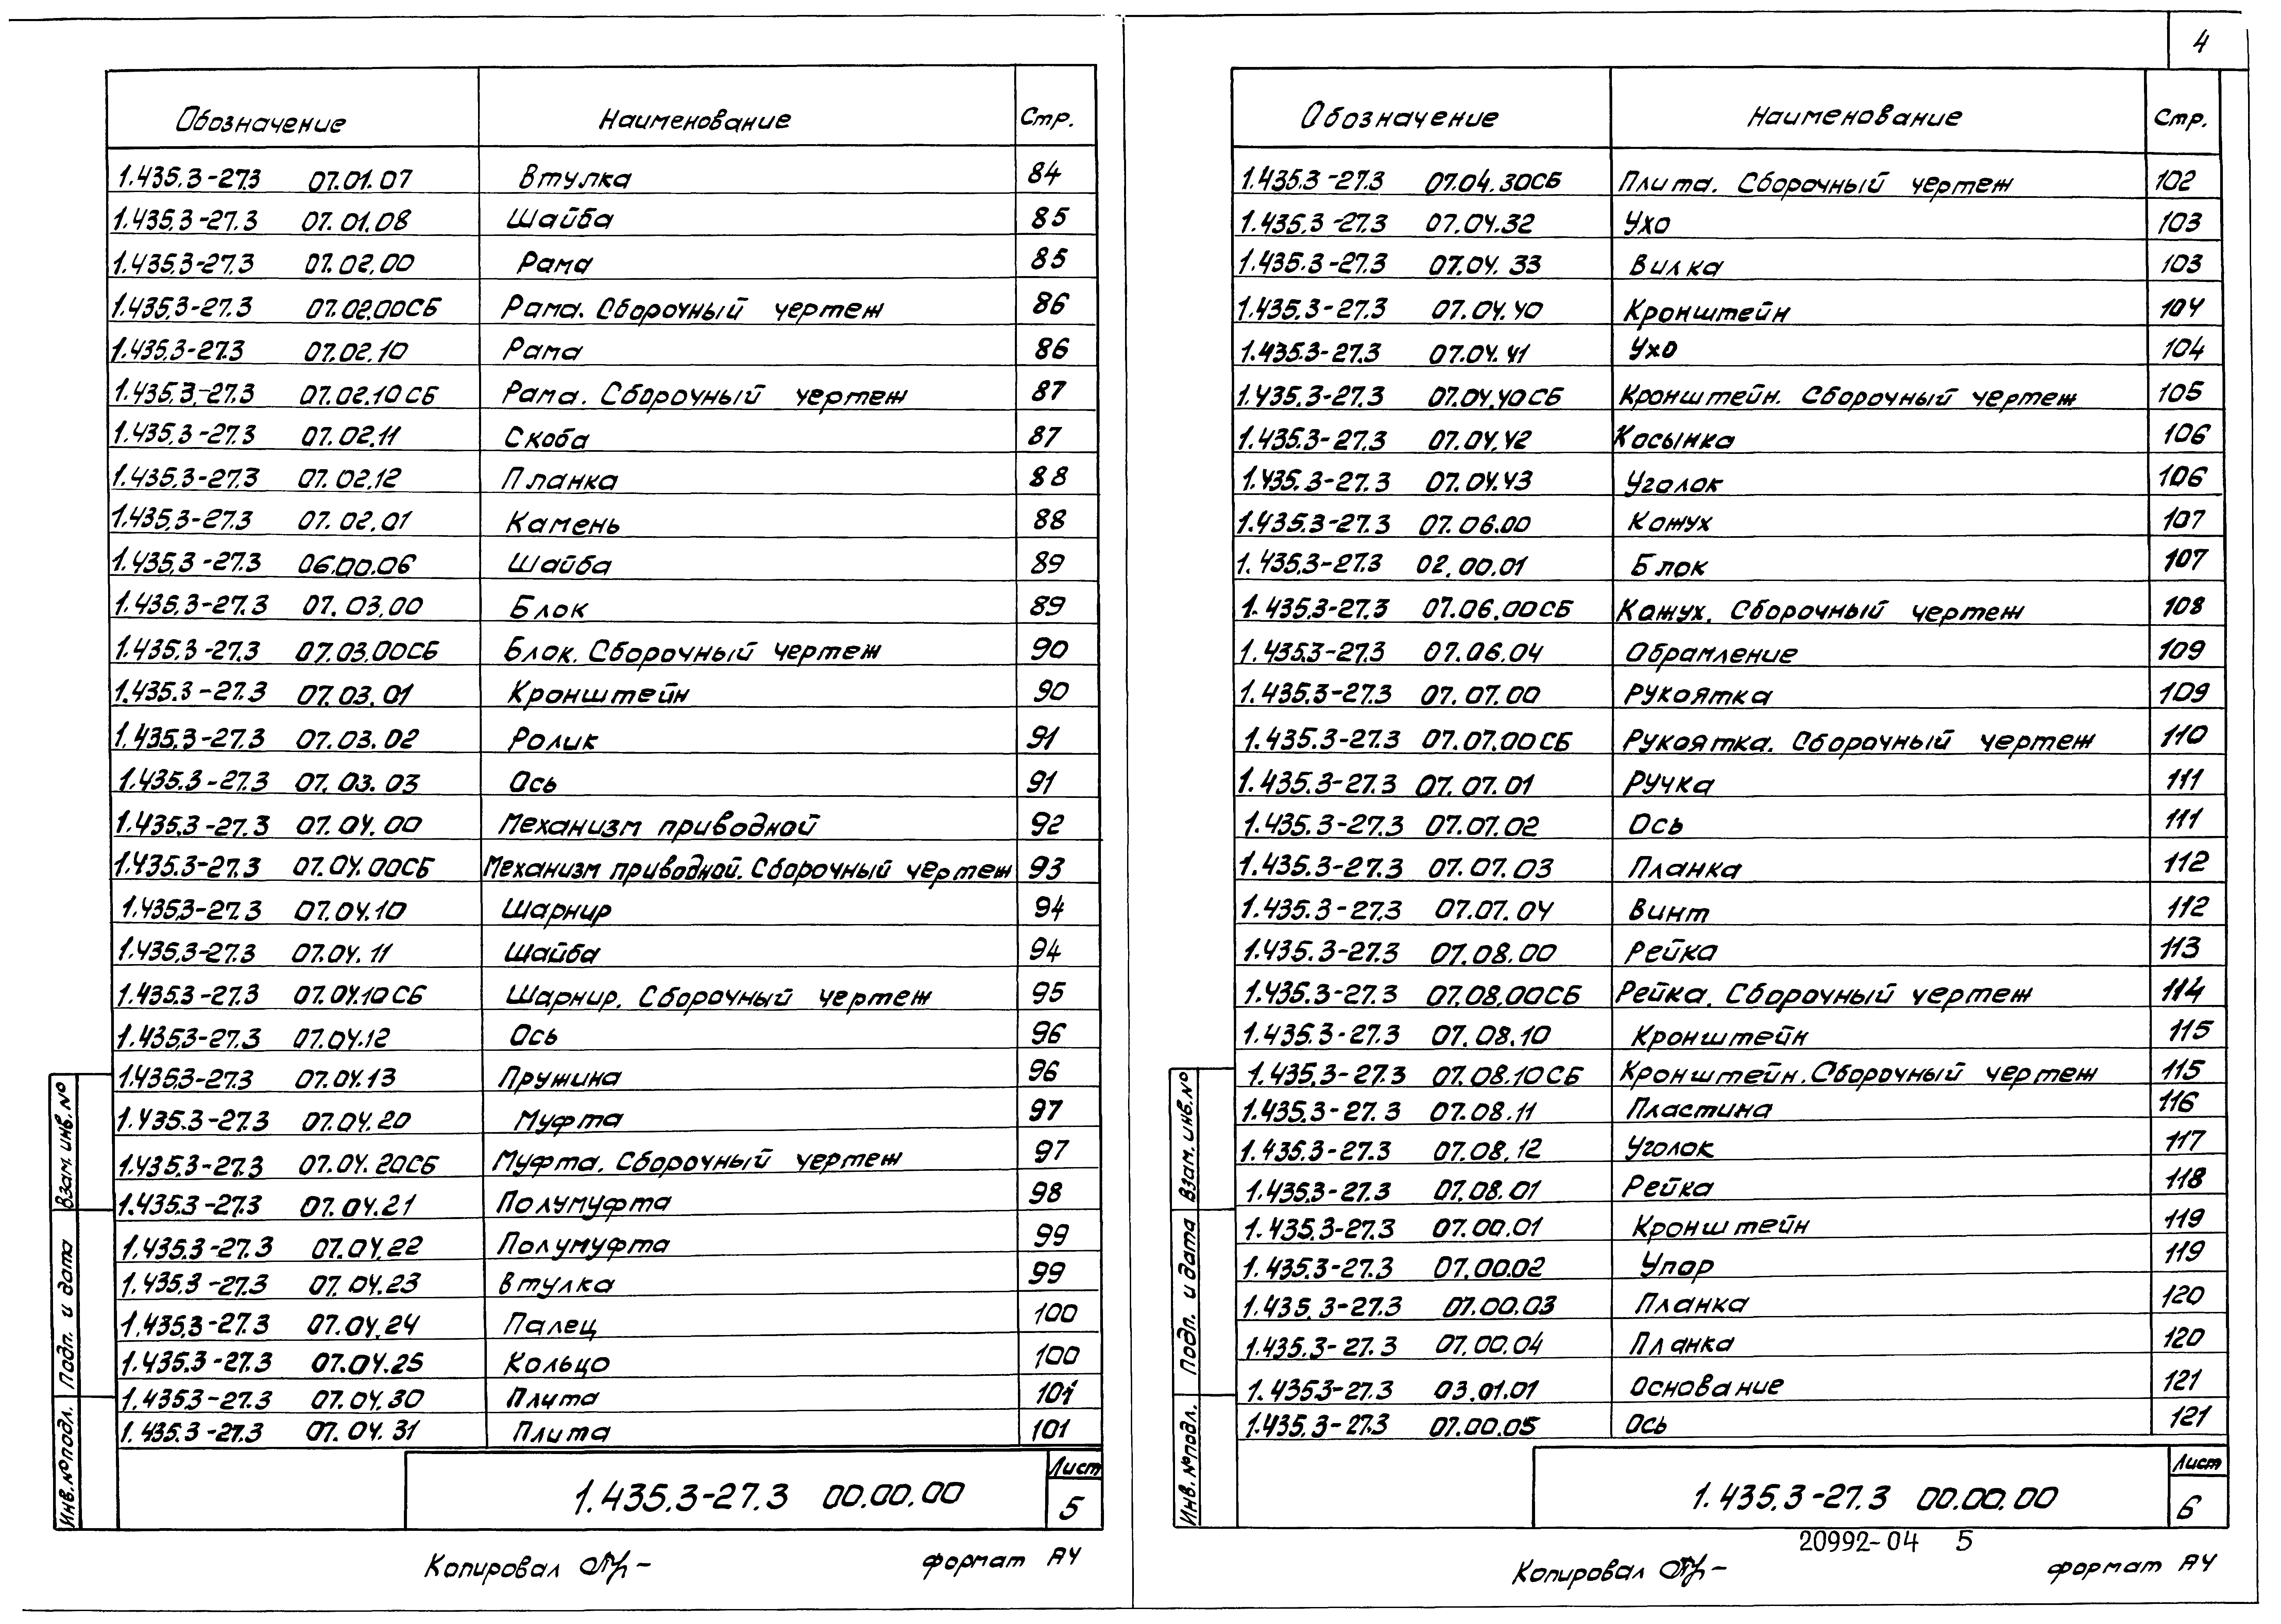 4
Обозначение Наименование Стр.
1.435.3-27.3 07.01.07 Втулка 84
1.435.3-27.3 07.01.08 Шайба 85
1.435.3-27.3 07.02.00 Рама 85
1.435.3-27.3 07.02.00СБ Рама. Сборочный чертеж 86
1.435.3-27.3 07.02.10 Рама 86
1.435.3-27.3 07.02.10СБ Рама. Сборочный чертеж 87
1.435.3-27.3 07.02.11 Скоба 87
1.435.3-27.3 07.02.12 Планка 88
1.435.3-27.3 07.02.01 Камень 88
1.435.3-27.3 06.00.06 Шайба 89
1.435.3-27.3 07.03.00 Блок 89
1.435.3-27.3 07.03.00СБ Блок. Сборочный чертеж 90
1.435.3-27.3 07.03.01 Кронштейн 90
1.435.3-27.3 07.03.02 Ролик 91
1.435.3-27.3 07.03.03 Ось 91
1.435.3-27.3 07.04.00 Механизм приводной 92
1.435.3-27.3 07.04.00СБ Механизм приводной. Сборочный чертеж 93
1.435.3-27.3 07.04.10 Шарнир 94
1.435.3-27.3 07.04.11 Шайба 94
1.435.3-27.3 07.04.10СБ Шарнир. Сборочный чертеж 95
1.435.3-27.3 07.04.12 Ось 96
1.435.3-27.3 07.04.13 Пружина 96
1.435.3-27.3 07.04.20 Муфта 97
1.435.3-27.3 07.04.20СБ Муфта. Сборочный чертеж 97
1.435.3-27.3 07.04.21 Полумуфта 98
1.435.3-27.3 07.04.22 Полумуфта 99
1.435.3-27.3 07.04.23 Втулка 99
1.435.3-27.3 07.04.24 Палец 100
1.435.3-27.3 07.04.25 Кольцо 100
1.435.3-27.3 07.04.30 Плита 101
1.435.3-27.3 07.04.31 Плита 101
Взам. инв. №
Подп. и дата
Инв. № подл.
1.435.3-27.3 00.00.00
Лист
5
Копировал
формат А4
Обозначение Наименование Стр.
1.435.3-27.3 07.04.30СБ Плита. Сборочный чертеж 102
1.435.3-27.3 07.04.32 Ухо 103
1.435.3-27.3 07.04.33 Вилка 103
1.435.3-27.3 07.04.40 Кронштейн 104
1.435.3-27.3 07.04.41 Ухо 104
1.435.3-27.3 07.04.40СБ Кронштейн. Сборочный чертеж 105
1.435.3-27.3 07.04.42 Косынка 106
1.435.3-27.3 07.04.43 Уголок 106
1.435.3-27.3 07.06.00 Кожух 107
1.435.3-27.3 02.00.01 Блок 107
1.435.3-27.3 07.06.00СБ Кожух. Сборочный чертеж 108
1.435.3-27.3 07.06.04 Обрамление 109
1.435.3-27.3 07.07.00 Рукоятка 109
1.435.3-27.3 07.07.00СБ Рукоятка. Сборочный чертеж 110
1.435.3-27.3 07.07.01 Ручка 111
1.435.3-27.3 07.07.02 Ось 111
1.435.3-27.3 07.07.03 Планка 112
1.435.3-27.3 07.07.04 Винт 112
1.435.3-27.3 07.08.00 Рейка 113
1.435.3-27.3 07.08.00СБ Рейка. Сборочный чертеж 114
1.435.3-27.3 07.08.10 Кронштейн 115
1.435.3-27.3 07.08.10СБ Кронштейн. Сборочный чертеж 115
1.435.3-27.3 07.08.11 Пластина 116
1.435.3-27.3 07.08.12 Уголок 117
1.435.3-27.3 07.08.01 Рейка 118
1.435.3-27.3 07.00.01 Кронштейн 119
1.435.3-27.3 07.00.02 Упор 119
1.435.3-27.3 07.00.03 Планка 120
1.435.3-27.3 07.00.04 Планка 120
1.435.3-27.3 03.01.01 Основание 121
1.435.3-27.3 07.00.05 Ось 121
Взам. инв. №
Подп. и дата
Инв. № подл.
1.435.3-27.3 00.00.00
Лист
6
20992-04 5
Копировал
формат А4